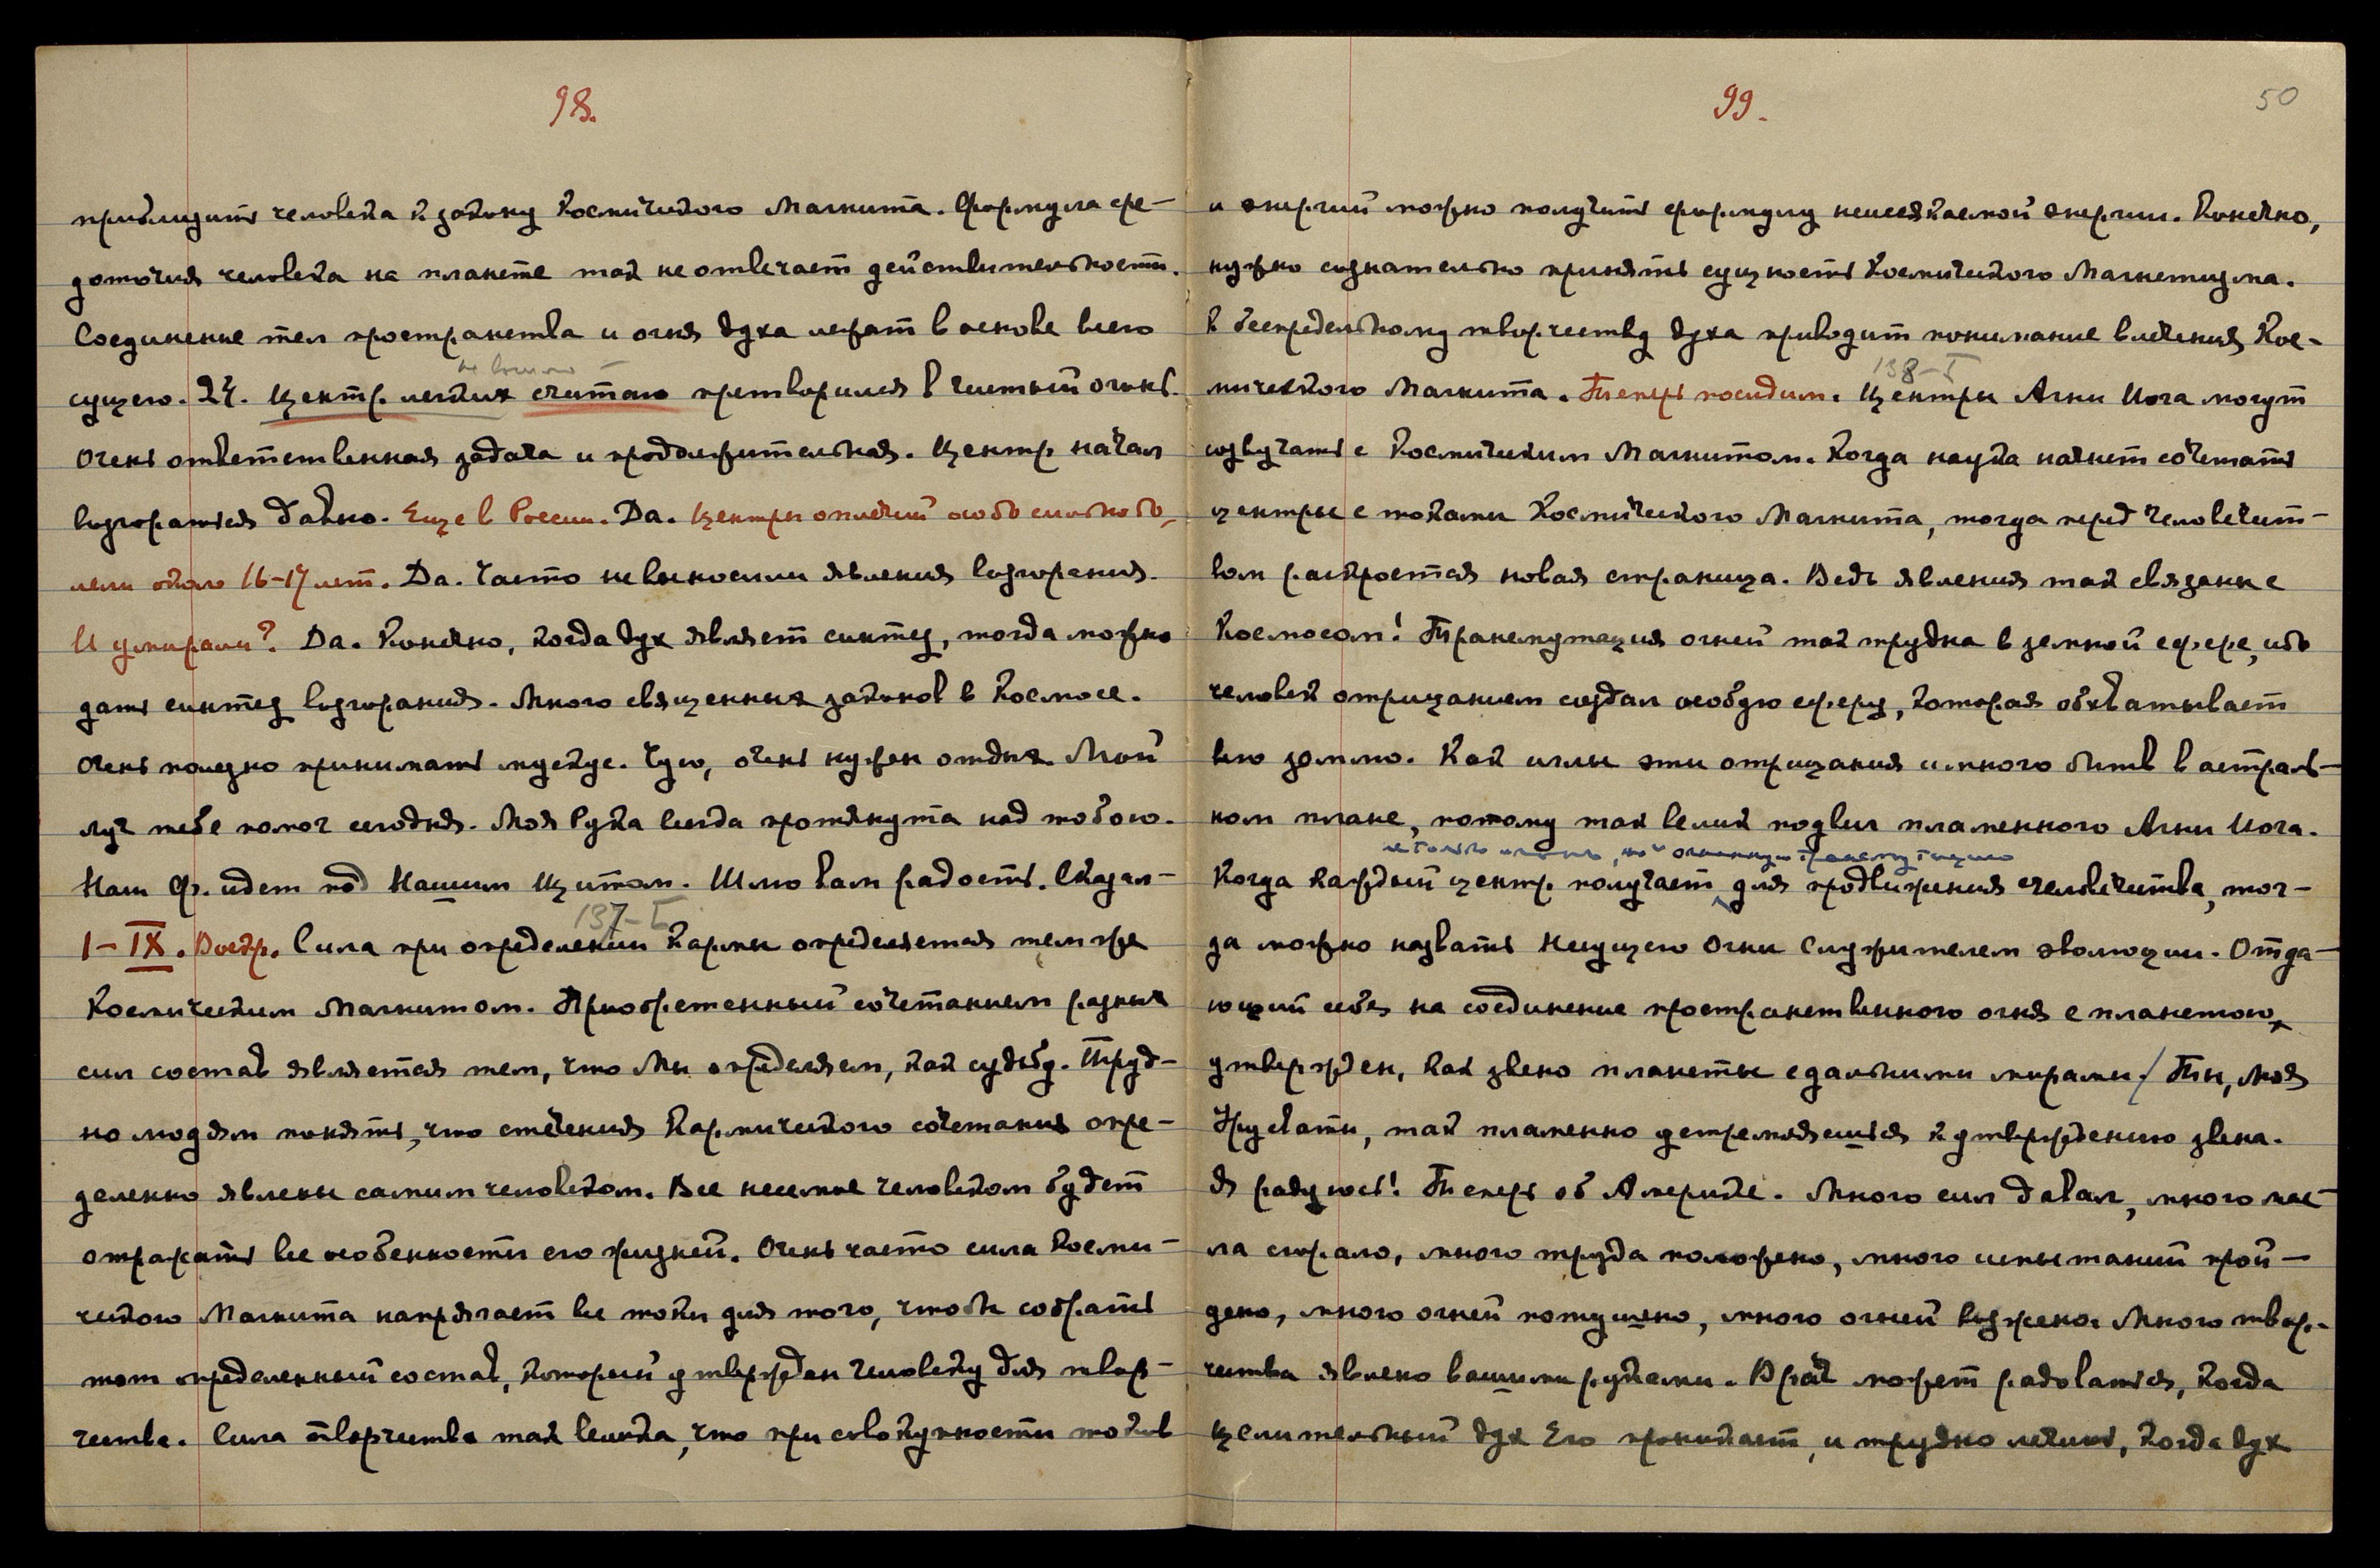 98.
приблизить человека к закону Космического Магнита. Формула сре-
доточия человека на планете так не отвечает действительности.
Соединение тел пространства и огня духа лежат в основе всего
сущего. 24. Центр легких считаю претворился в чистый огонь.
Очень ответственная задача и продолжительная. Центр начал
возгораться давно. Еще в России. Да. Центры оплечий особо сильно бо-
лели около 16-17 лет. Да. Часто не выносили явления возгорания.
И умирали? Да. Конечно, когда дух являет синтез, тогда можно
дать синтез возгорания. Много священных законов в Космосе.
Очень полезно принимать мускус. Чую, очень нужен отдых. Мой
луч тебе помог сегодня. Моя Рука всегда протянута над тобою.
Наш Ф. идет под Нашим Щитом. Шлю вам радость. Сказал-
137-I
1-IX. Воскр. Сила при определении Кармы определяется тем же
Космическим Магнитом. Приобретенный сочетанием разных
сил состав является тем, что Мы определяем, как судьбу. Труд-
но людям понять, что стечения Кармического сочетания опре-
деленно явлены самим человеком. Все несомое человеком будет
отражать все особенности его жизней. Очень часто сила Косми-
ческого Магнита напрягает все токи для того, чтобы собрать
тот определенный состав, который утвержден человеку для твор-
чества. Сила творчества так велика, что при совокупности токов
99.
50
и энергий можно получить формулу неиссякаемой энергии. Конечно,
нужно сознательно принять сущность Космического Магнетизма.
К беспредельному творчеству духа приводит понимание влечения Кос-
138-I
мического Магнита. Теперь посидим. Центры Агни Йога могут
созвучать с Космическим Магнитом. Когда наука начнет сочетать
центры с токами Космического Магнита, тогда перед человечест-
вом раскроется новая страница. Ведь явления так связаны с
Космосом! Трансмутация огней так трудна в земной сфере, ибо
человек отрицанием создал особую сферу, которая охватывает
всю землю. Как иглы эти отрицания и много битв в астраль-
ном плане, потому так велик подвиг пламенного Агни Йога.
не только огонь, но и огненную трансмутацию
Когда каждый центр получает для продвижения человечества, тог-
да можно назвать Несущего Огни Служителем эволюции. Отда-
ющий себя на соединение пространственного огня с планетою,
утвержден, как звено планеты с дальними мирами. / Ты, Моя
Урусвати, так пламенно устремляешься к утверждению звена.
Я радуюсь! Теперь об Америке. Много сил давал, много мас-
ла сгорало, много труда положено, много испытаний прой-
дено, много огней потушено, много огней возжено. Много твор-
чества явлено вашими руками. Врач может радоваться, когда
целительный дух Его проникает, и трудно лечить, когда дух